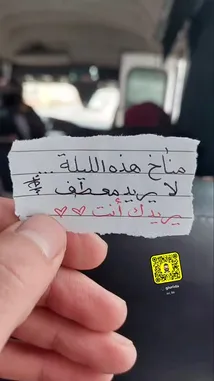 مناخ هذه الليلة ...
لا يريد معطف
يريدك أنت